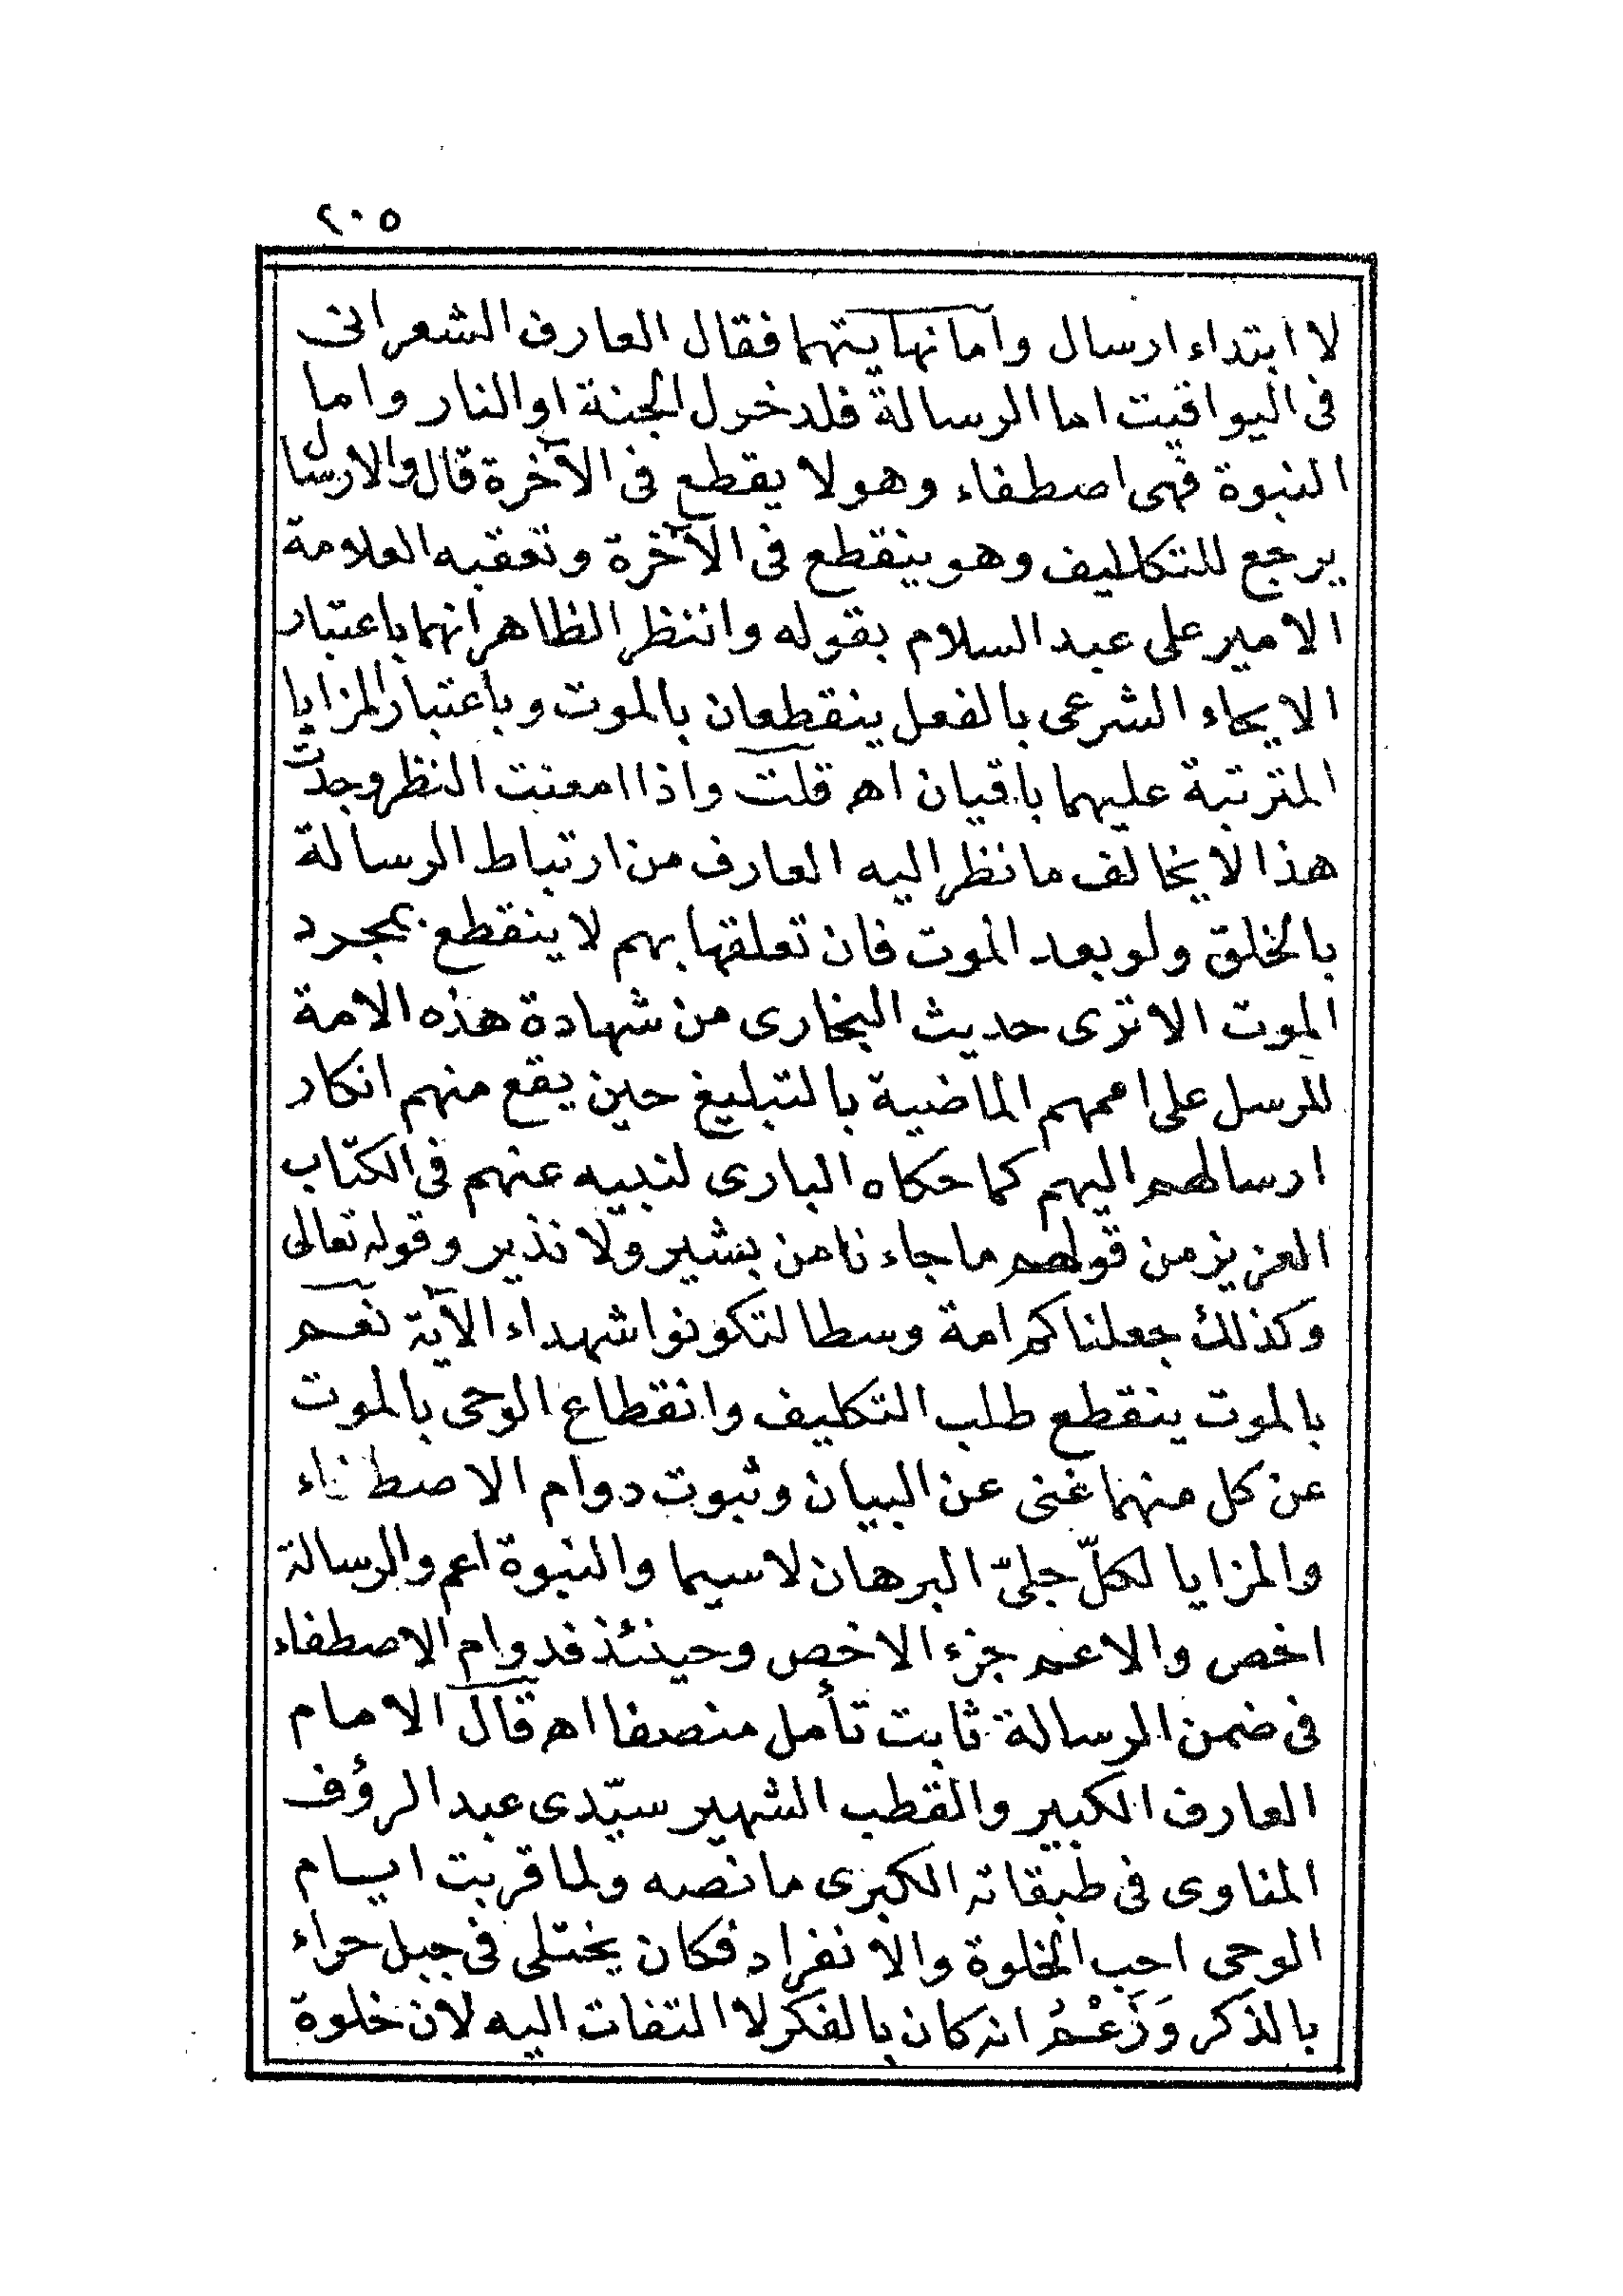 ٢٠٥
لا ابتداء ارسال واما نهايتهما فقال العارف الشعرانى
فى اليواقيت اما الرسالة فلدخول الجنة او النار واما
النبوة فهى اصطفاء وهو لا يقطع فى الآخرة قال والارسال
يرجع للتكاليف وهو ينقطع فى الآخرة وتعقبه العلامة
الامير على عبد السلام بقوله وانظر الظاهر انهما باعتبار
الايحاء الشرعى بالفعل ينقطعان بالموت وباعتبار المزايا
المترتبة عليهما باقيان اهـ قلت واذا امعنت النظر وجدت
هذا لا يخالف ما نظر اليه العارف من ارتباط الرسالة
بالخلق ولو بعد الموت فان تعلقها بهم لا ينقطع بمجرد
الموت الا ترى حديث البخارى من شهادة هذه الامة
للرسل على اممهم الماضية بالتبليغ حين يقع منهم انكار
ارسالهم اليهم كما حكاه البارى لنبيه عنهم فى الكتاب
العزيز من قولهم ما جاءنا من بشير ولا نذير وقوله تعالى
وكذلك جعلناكم امة وسطا لتكونوا شهداء الآية نعم
بالموت ينقطع طلب التكليف وانقطاع الوحى بالموت
عن كل منهما غنى عن البيان وثبوت دوام الاصطفاء
والمزايا لكلّ جلىّ البرهان لا سيما والنبوة اعم والرسالة
اخص والاعم جزء الاخص وحينئذ فدوام الاصطفاء
فى ضمن الرسالة ثابت تأمل منصفا اهـ قال الامام
العارف الكبير والقطب الشهير سيّدى عبد الرؤف
المناوى فى طبقاته الكبرى ما نصه ولما قربت ايام
الوحى احب الخلوة والانفراد فكان يختلى فى جبل حراء
بالذكر وَزَعْمُ انه كان بالفكر لا التفات اليه لان خلوة